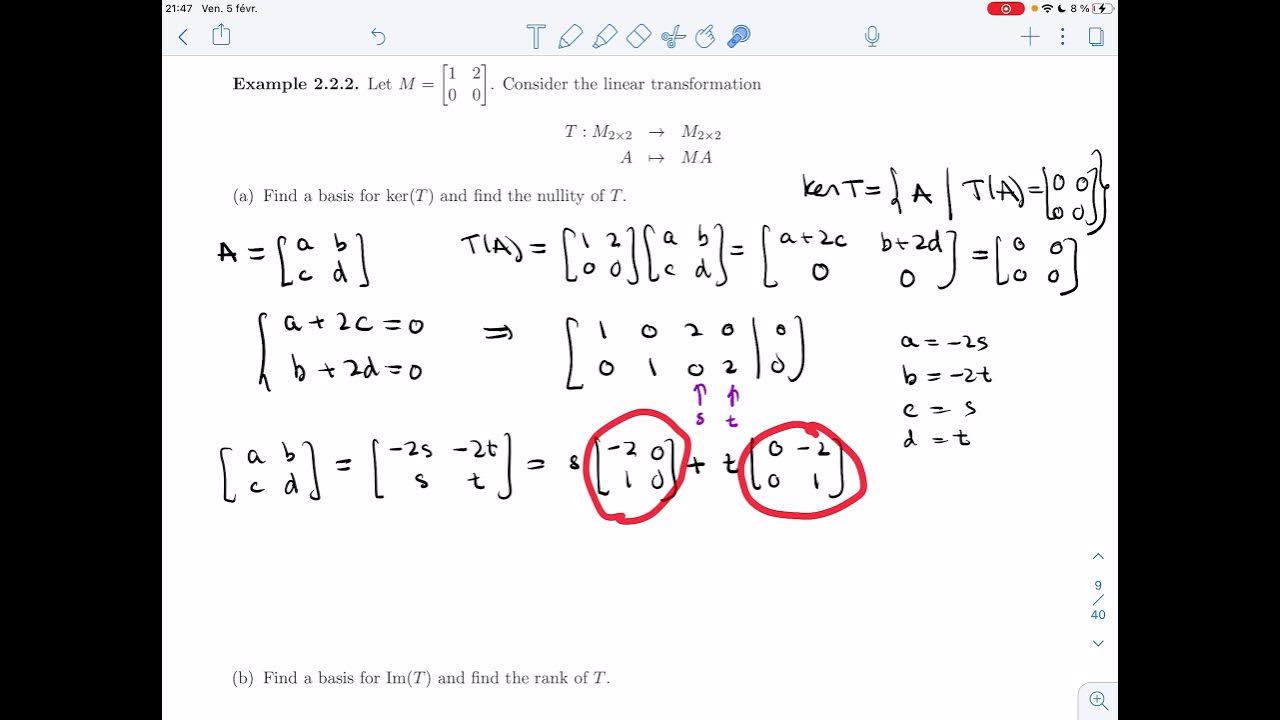 21:47 Ven. 5 févr. 8 %
Example 2.2.2. Let M = [1 2; 0 0]. Consider the linear transformation
T : M2×2 → M2×2
A ↦ MA
(a) Find a basis for ker(T) and find the nullity of T.
ker T = { A | T(A) = [0 0; 0 0] }
A = [a b; c d] T(A) = [1 2; 0 0] [a b; c d] = [a+2c b+2d; 0 0] = [0 0; 0 0]
{ a + 2c = 0
b + 2d = 0
⇒ [1 0 2 0 | 0; 0 1 0 2 | 0]
↑ ↑
s t
a = -2s
b = -2t
c = s
d = t
[a b; c d] = [-2s -2t; s t] = s [-2 0; 1 0] + t [0 -2; 0 1]
9
/
40
(b) Find a basis for Im(T) and find the rank of T.